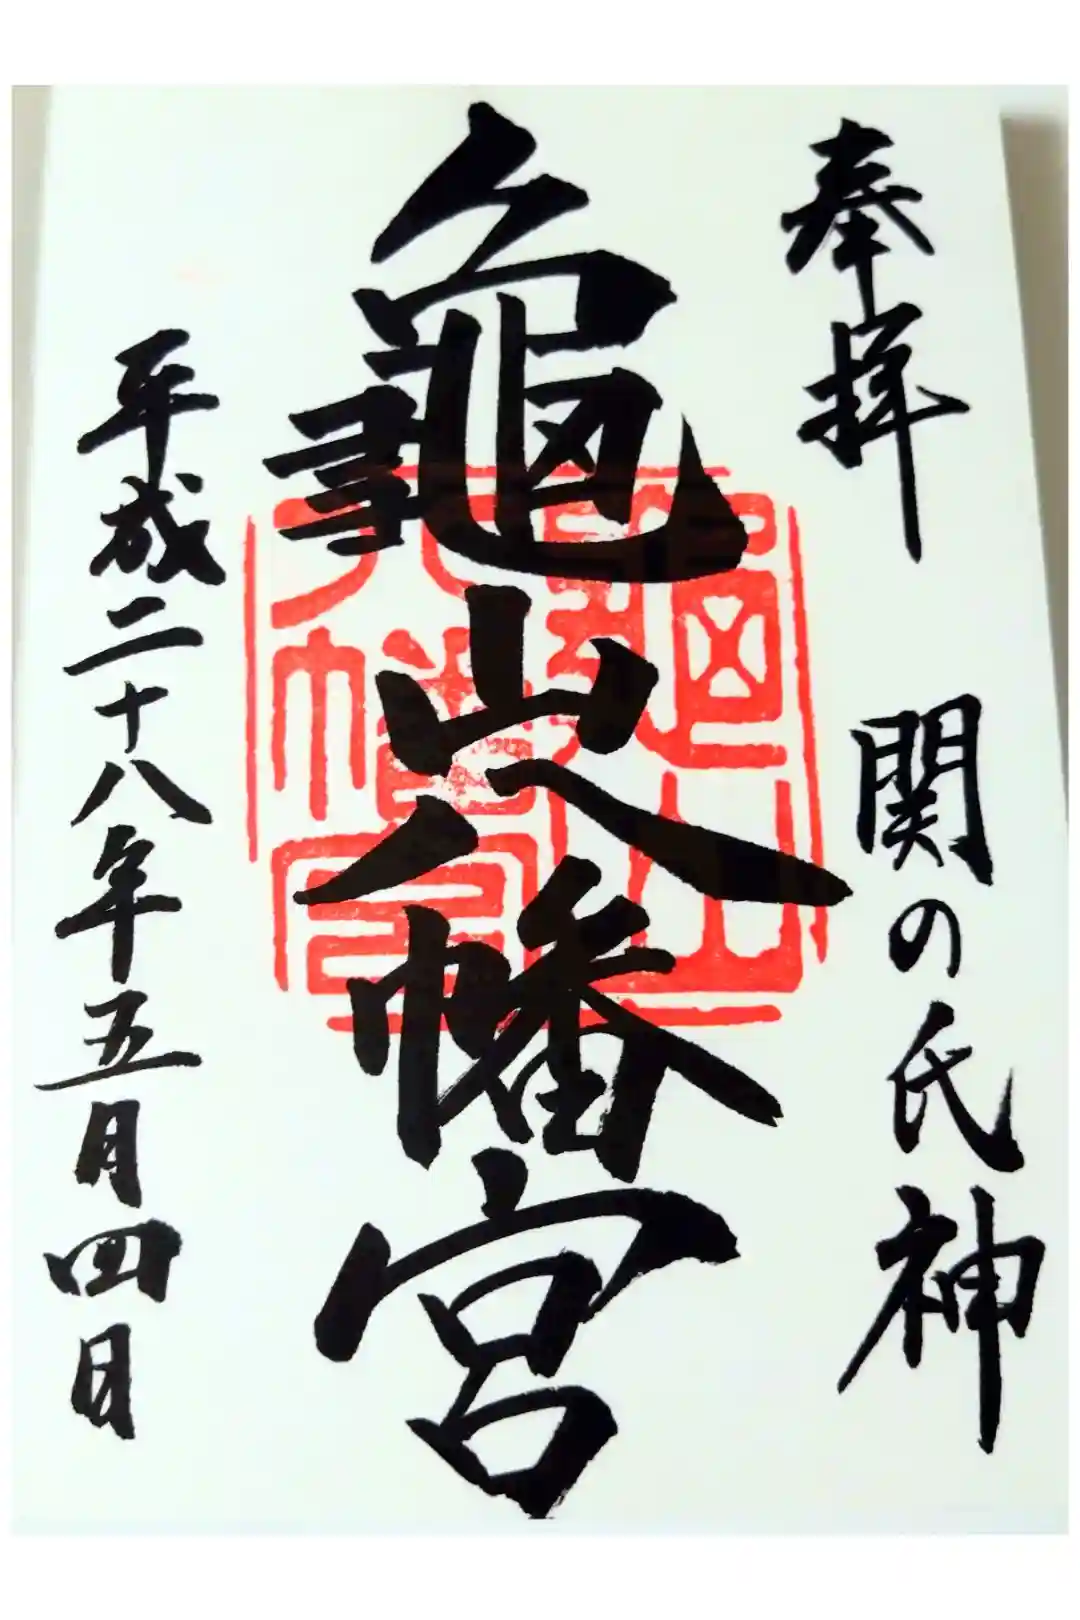 奉拝 関の氏神
龜山八幡宮
平成二十八年五月四日
龜山
八幡宮